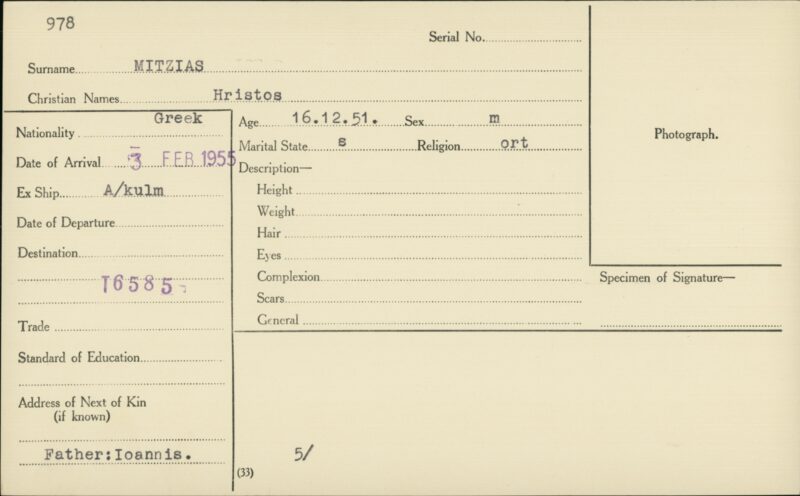 978
Serial No.
Surname MITZIAS
Christian Names Hristos
Nationality Greek
Age 16.12.51. Sex m
Date of Arrival 3 FEB 1955
Marital State s Religion ort
Photograph.
Ex Ship A/kulm
Description—
Height
Date of Departure
Weight
Hair
Destination
Eyes
T6585
Complexion
Specimen of Signature—
Scars
Trade
General
Standard of Education
Address of Next of Kin
(if known)
Father:Ioannis.
5/
(33)